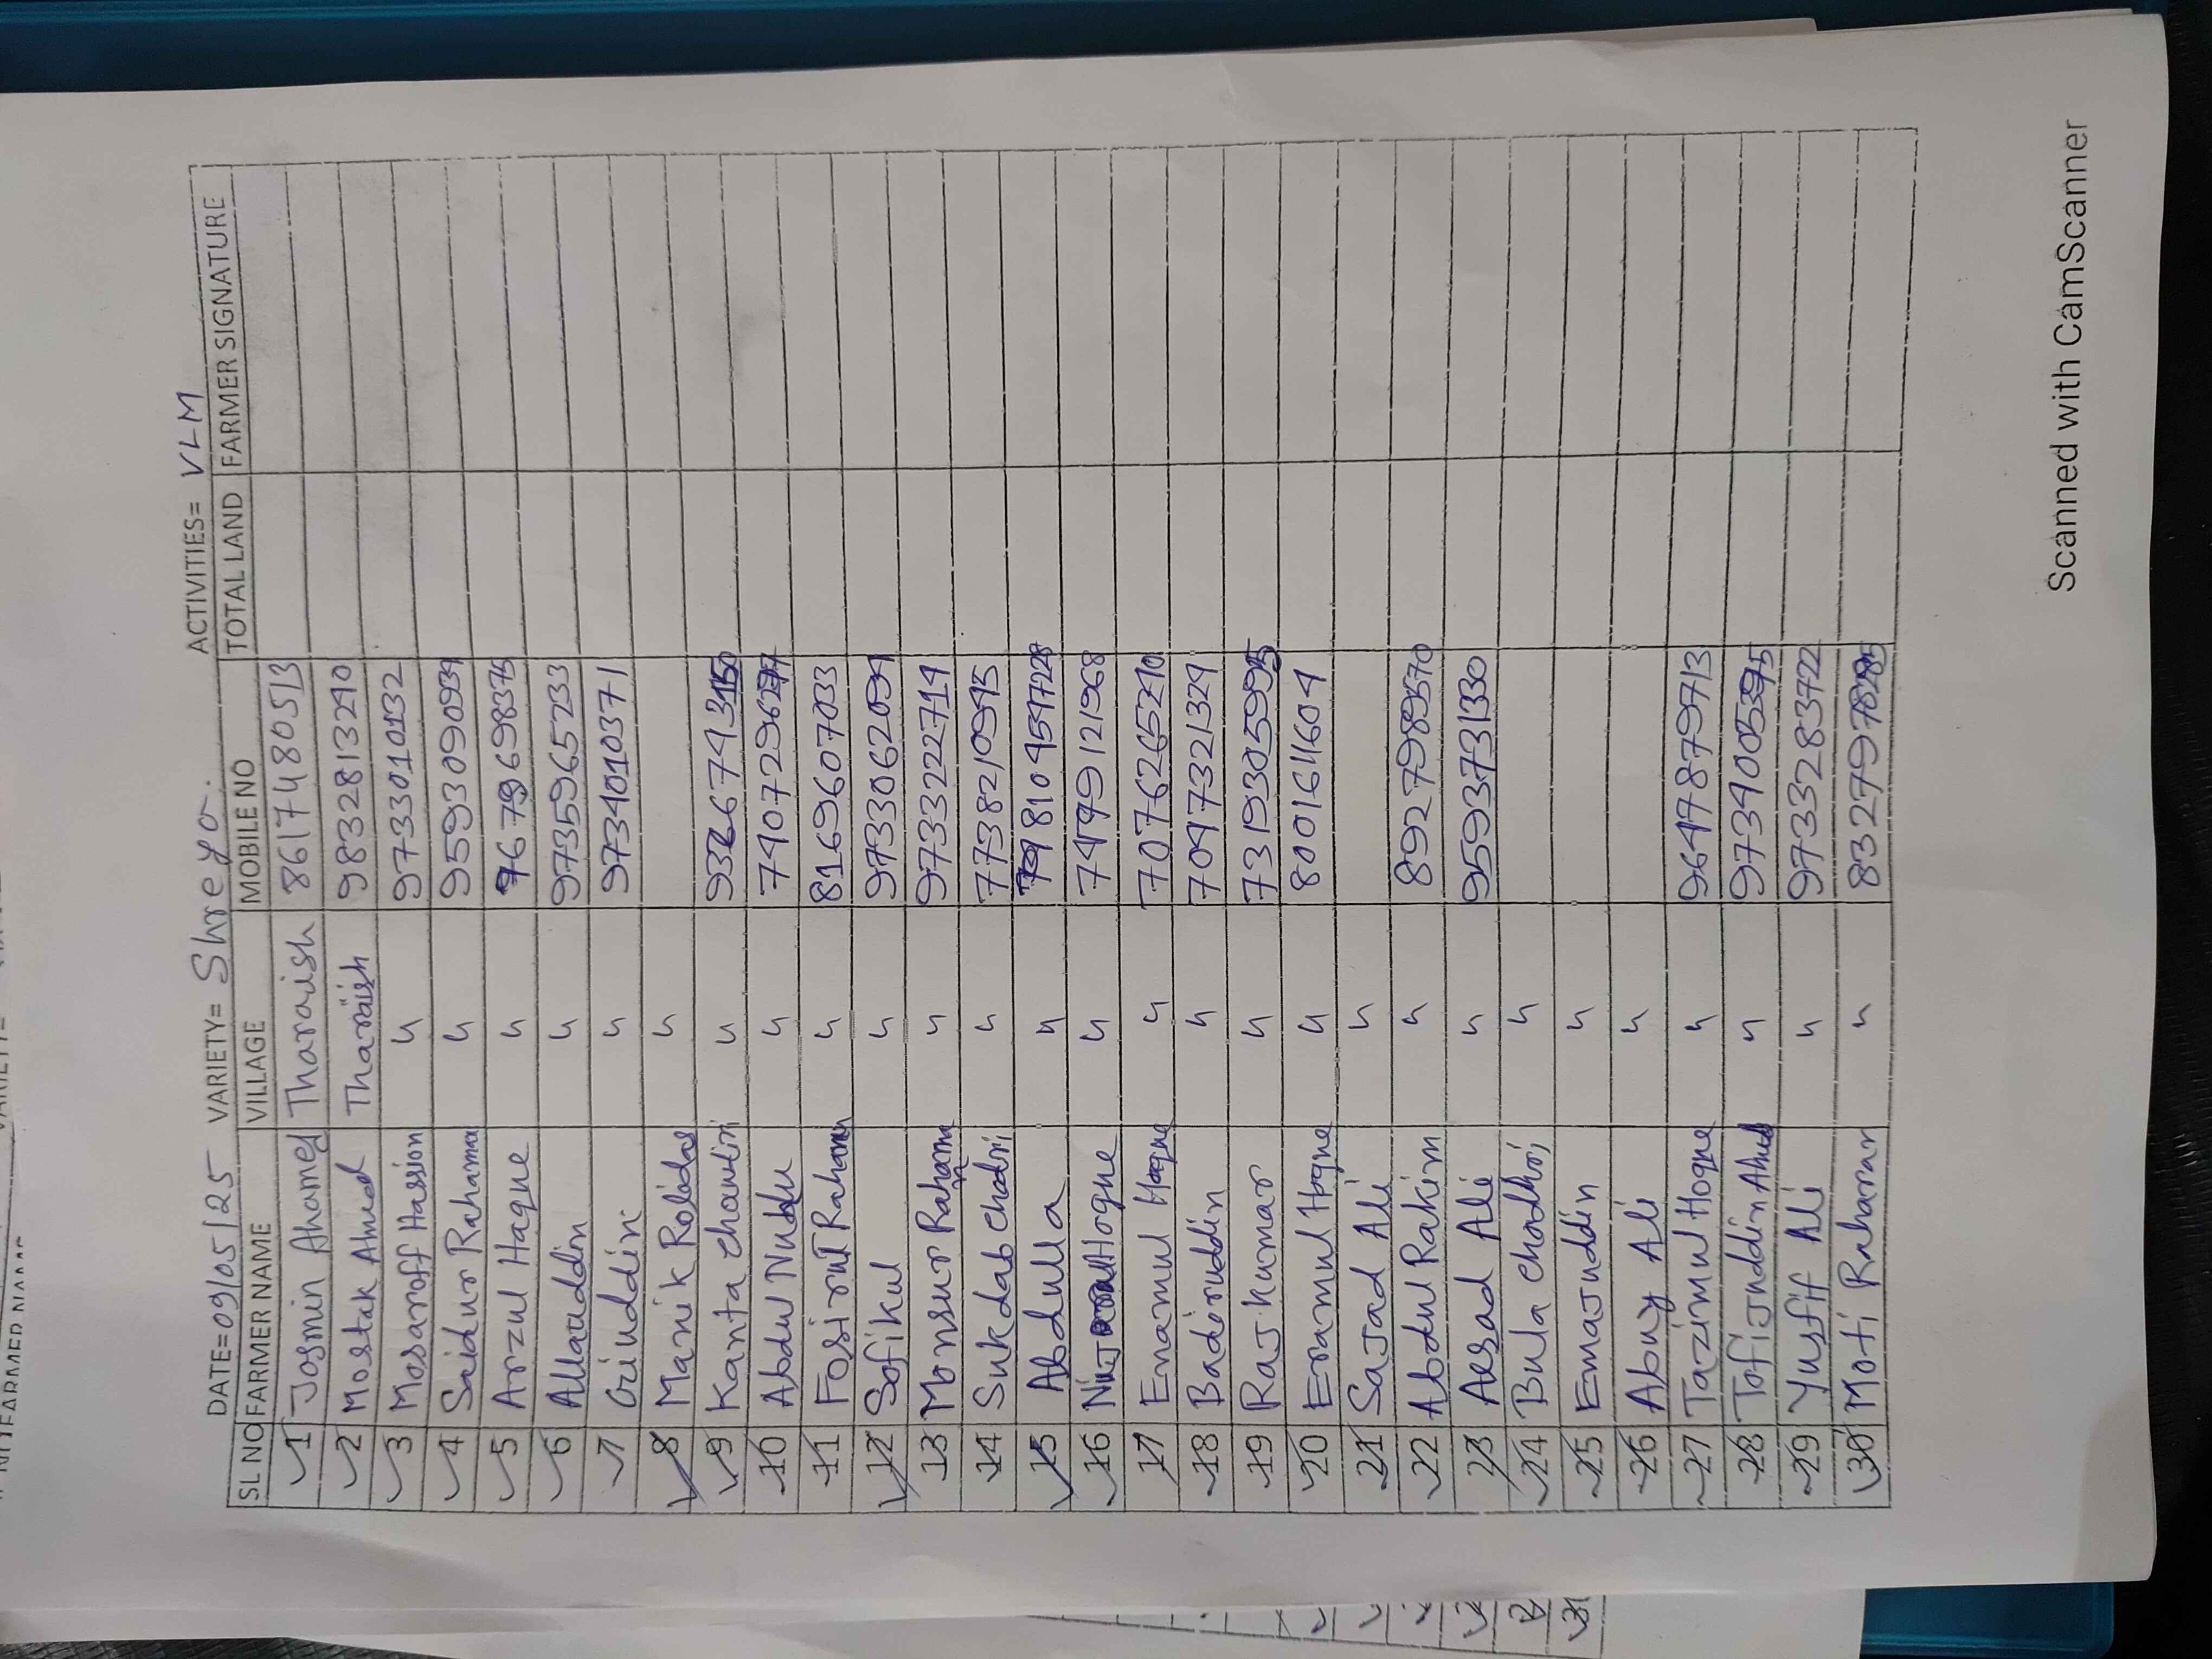 DATE=09/05/25 VARIETY= Shreyo. ACTIVITIES= VLM
SL NO FARMER NAME VILLAGE MOBILE NO TOTAL LAND FARMER SIGNATURE
1 Josmin Ahamed Tharaish 8617480513
2 Mostak Ahmed Tharaish 9832813290
3 Mosaroff Hassion 〃 9733010132
4 Saidur Rahama 〃 9593090939
5 Arzul Haque 〃 7679698375
6 Allauddin 〃 9735965233
7 〃 9734010371
8 Manik Robidas 〃
9 Kanta 〃
10 Abdul 〃
11 Rahaman 〃 8169607033
12 Sofikul 〃 9733062099
13 Monsur Rahama 〃 9733222719
14 Sukdab Chodri 〃 7738210995
15 Abdulla 〃
16 Hoque 〃
17 Enamul Hoque 〃 7076265290
18 Badiruddin 〃 7097321329
19 Rajkumar 〃
20 Eramul Hoque 〃 8001611604
21 Sajad Ali 〃
22 Abdul Rakim 〃 8927989570
23 Aesad Ali 〃 9593731330
24 Bula Chodhri 〃
25 Emajuddin 〃
26 Ali 〃
27 Tazimul Hoque 〃 9647879713
28 Tofijuddin Ahmed 〃
29 Yusfif Ali 〃 9733283722
30 Moti Rahaman 〃
Scanned with CamScanner